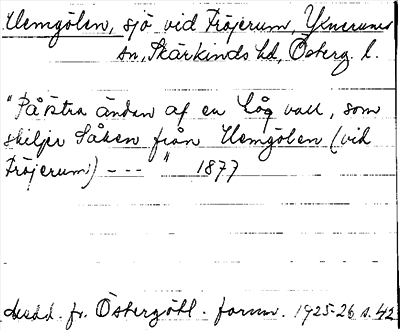 Uemgölen, sjö vid Fröjerum, Yknerums
sn, Skärkinds hd, Österg. l.
"På östra ändan af en låg vall, som
skiljer Såken från Uemgölen (vid
Fröjerum) --- " 1877
Medd. fr. Östergötl. fornm. 1925-26 s. 42